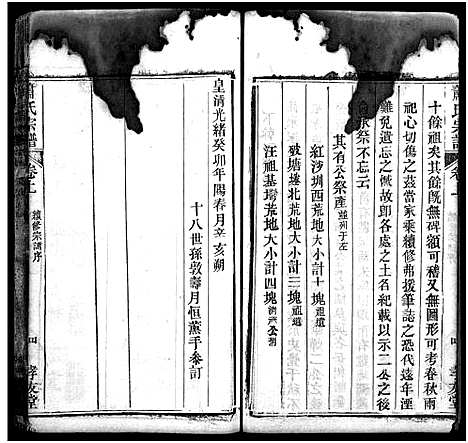 十餘祖矣其餘旣無碑額可稽又無圖形可考春秋兩
祀心切傷之茲當家乘續修弗援筆誌之恐代遠年湮
難免遺忘之憾故卽各處之土名紀載以示二公之後
祭不忘云
其有公祭產並列于左
紅沙圳西荒地大小計十塊祖遺
破塘墘北荒地大小計三塊祖遺
汪祖基塝荒地大小計四塊
皇清光緒癸卯年陽春月辛亥朔
十八世孫敦壽月恒薰手參訂
氏宗譜
卷上
續修宗譜序
四
孝友堂